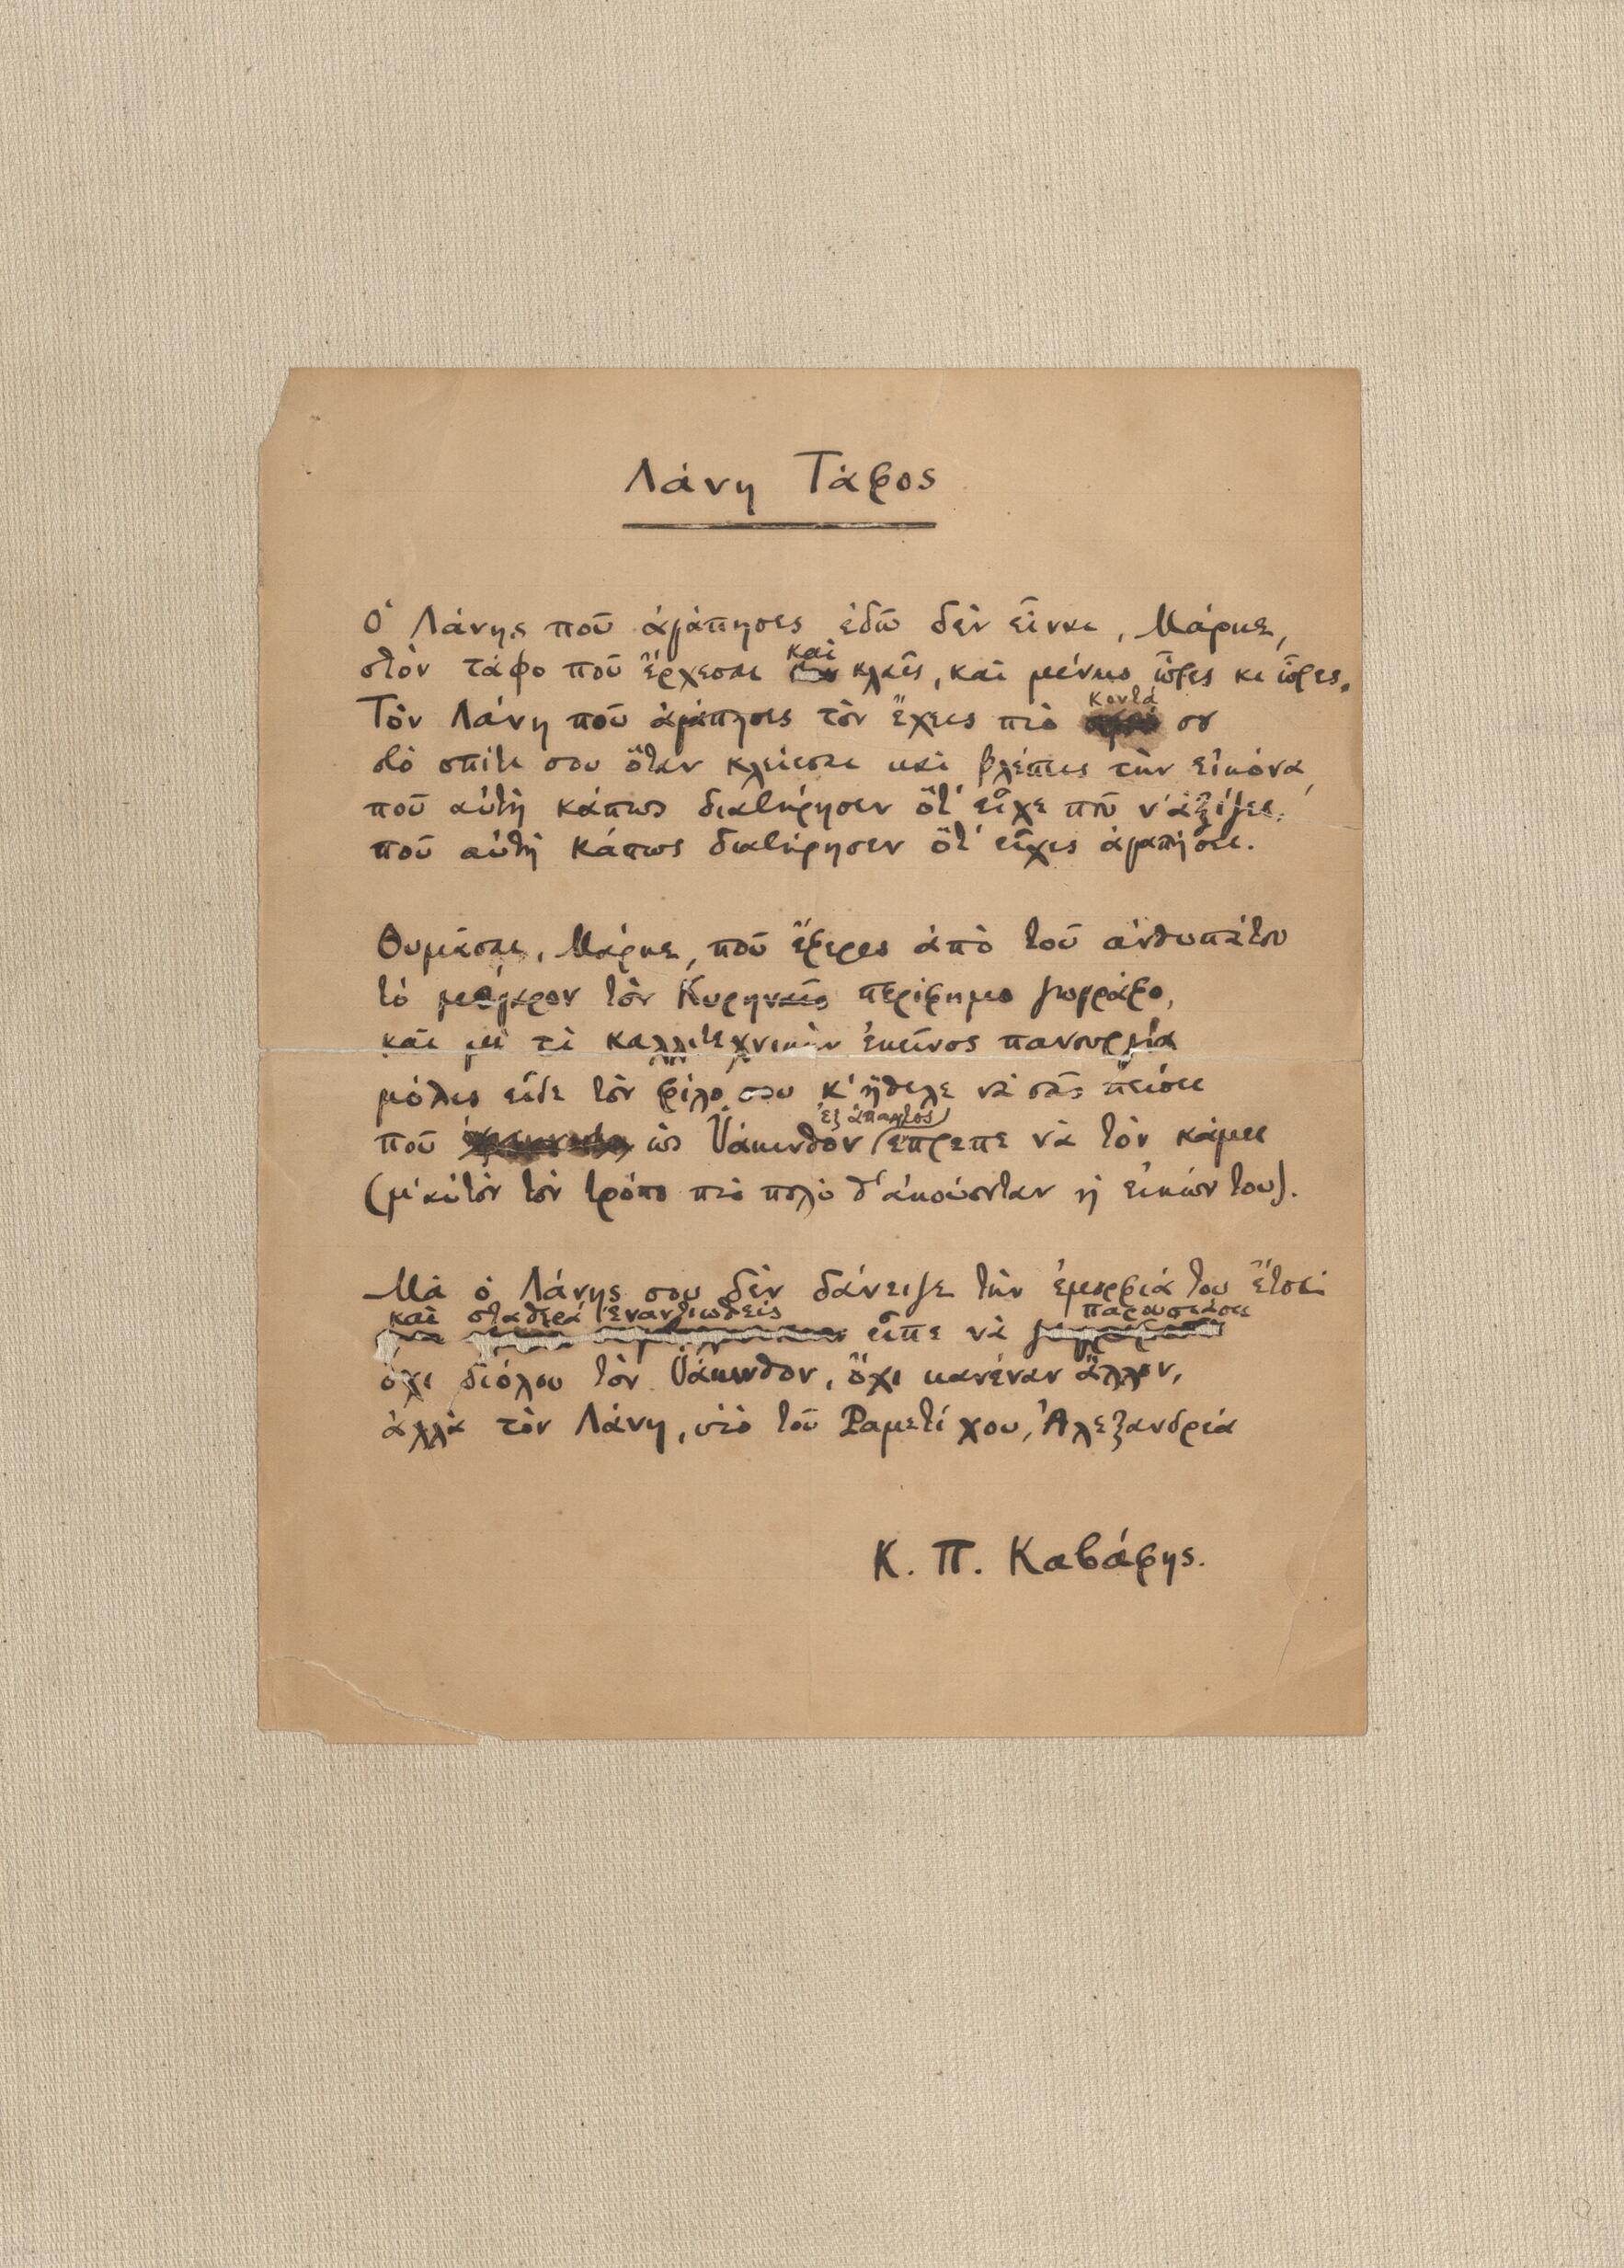 Λάνη Τάφος
Ὁ Λάνης ποῦ ἀγάπησες ἐδῶ δὲν εἶναι, Μάρκε,
στὸν τάφο ποῦ ἔρχεσαι καὶ κλαῖς, καὶ μένεις ὧρες κι ὧρες.
Τὸν Λάνη ποῦ ἀγάπησες τὸν ἔχεις πιὸ κοντά σου
στὸ σπίτι σου ὅταν κλείεσαι καὶ βλέπεις τὴν εἰκόνα,
ποῦ αὐτὴ κάπως διατήρησεν ὅτ' εἶχε ποῦ ν' ἀξίζει,
ποῦ αὐτὴ κάπως διατήρησεν ὅτ' εἶχες ἀγαπήσει.
Θυμᾶσαι, Μάρκε, ποῦ ἔφερες ἀπὸ τοῦ ἀνθυπάτου
τὸ μέγαρον τὸν Κυρηναῖο περίφημο ζωγράφο,
καὶ μὲ τὶ καλλιτεχνικὴν ἐκεῖνος πανουργία
μόλις εἶδε τὸν φίλο σου κ' ἤθελε νὰ σᾶς πείσει
ποῦ ὡς Ὑάκινθον ἐξ ἅπαντος ἔπρεπε νὰ τὸν κάμει
(μ' αὐτὸν τὸν τρόπο πιὸ πολὺ θ' ἀκούονταν ἡ εἰκών του).
Μὰ ὁ Λάνης σου δὲν δάνειζε τὴν ἐμορφιά του ἔτσι·
καὶ σταθερὰ ἐναντιωθεὶς εἶπε νὰ παρουσιάσει
ὄχι διόλου τὸν Ὑάκινθον, ὄχι κανέναν ἄλλον,
ἀλλὰ τὸν Λάνη, υἱὸ τοῦ Ραμετίχου, Ἀλεξανδρέα
Κ. Π. Καβάφης.